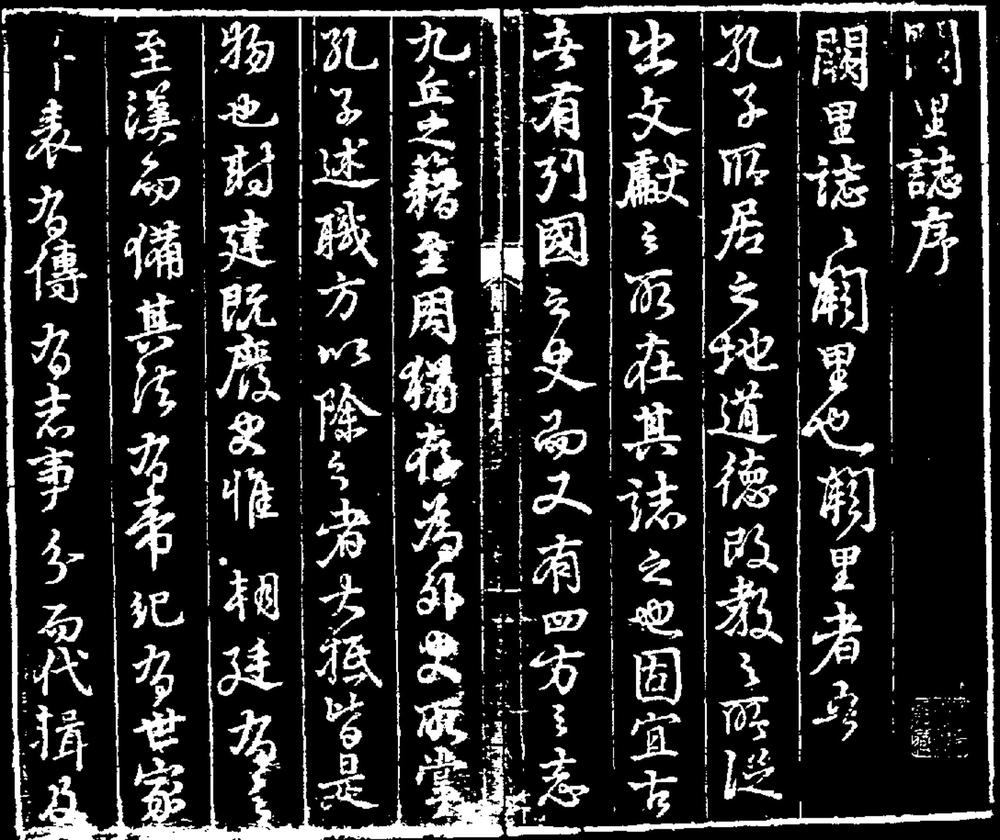 闕里誌序
闕里誌〻闕里也闕里者吾
孔子所居之地道德政教之所從
出文獻之所在其誌之也固宜古
者有列國之史而又有四方之志
九丘之籍至周猶存為外史所掌
孔子述職方以除之者大抵皆是
物也封建既廢史惟朝廷有之
至漢而備其法有帝紀有世家
表有傳有志事分而代輯及